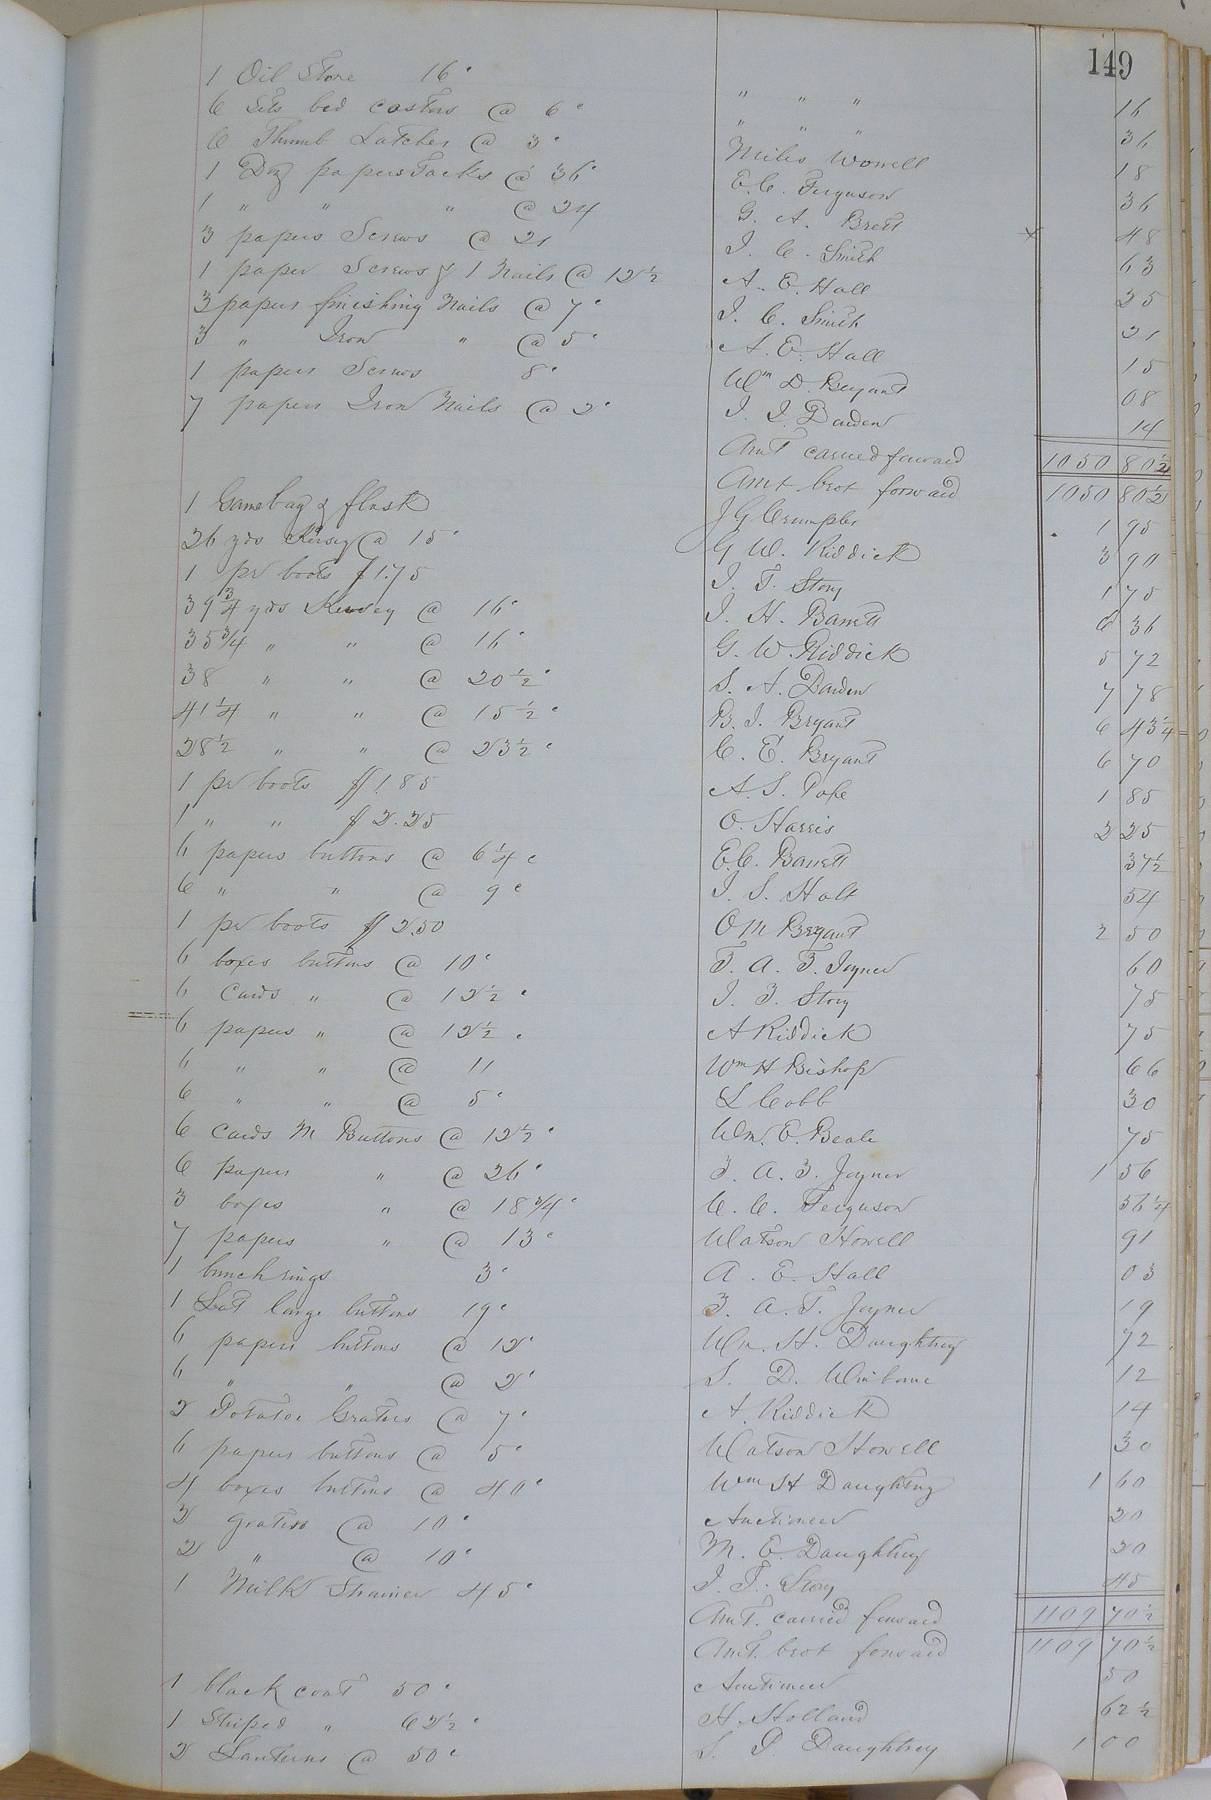 149
1 Oil Stone 16c " " " 16
6 Sets bed castors @ 6c " " " 36
6 Thumb Latches @ 3c Miles Worrell 18
1 Doz papers Tacks @ 36c E. C. Ferguson 36
1 " " " @ 24 G. A. Brett x 48
3 papers Screws @ 21 J. C. Smith 63
1 paper Screws & 1 Nails @ 12½ A. E. Hall 25
3 papers finishing Nails @ 7c J. C. Smith 21
3 " Iron " @ 5c A. E. Hall 15
1 papers Screws 8c Wm D. Bryant 08
7 papers Iron Nails @ 2c J. J. Darden 14
Amt carried forward 1050 80½
Amt brot forward 1050 80½
1 Gamebag & flask J G Crumpler 1 95
26 yds Kersey @ 15c G W. Riddick 3 90
1 pr boots $1.75 J. T. Story 1 75
39¾ yds Kersey @ 16c J. H. Barrett 6 36
35¾ " " @ 16c G. W. Riddick 5 72
38 " " @ 20½c S. A. Darden 7 78
41¼ " " @ 15½c B. J. Bryant 6 43¼
28½ " " @ 23½c C. E. Bryant 6 70
1 pr boots $1.85 A. S. Pope 1 85
1 " " $2.25 O. Harris 2 25
6 papers buttons @ 6¼c E. C. Barrett 37½
6 " " @ 9c J. S. Holt 54
1 pr boots $2.50 O M Bryant 2 50
6 boxes buttons @ 10c T. A. T. Joyner 60
6 Cards " @ 12½c J. T. Story 75
6 papers " @ 12½c A Riddick 75
6 " " @ 11 Wm H Bishop 66
6 " " @ 5c L Cobb 30
6 Cards M Buttons @ 12½c Wm. E. Beale 75
6 papers " @ 26c T. A. T. Joyner 1 56
3 boxes " @ 18¾c C. C. Ferguson 56¼
7 papers " @ 13c Watson Howell 91
1 bunch rings 3c A. E. Hall 03
1 Lot large buttons 19c T. A. T. Joyner 19
6 papers buttons @ 12c Wm. H. Daughtrey 72
6 " " @ 2c S. D. Winborne 12
2 Potatoe Graters @ 7c A. Riddick 14
6 papers buttons @ 5c Watson Howell 30
4 boxes buttons @ 40c Wm H Daughtrey 1 60
2 graters @ 10c Auctioneer 20
2 " @ 10c M. E. Daughtrey 20
1 Milk Strainer 45c J. T. Story 45
Amt. carried forward 1109 70½
Amt. brot forward 1109 70½
1 black coat 50c Auctioneer 50
1 Striped " 62½c H. Holland 62½
2 Lanterns @ 50c S. P. Daughtrey 1 00